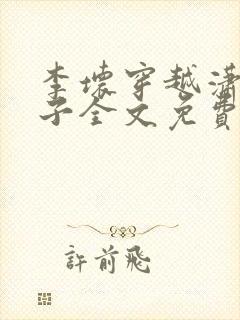 李壞穿越瀟
子全文免費
許前飛